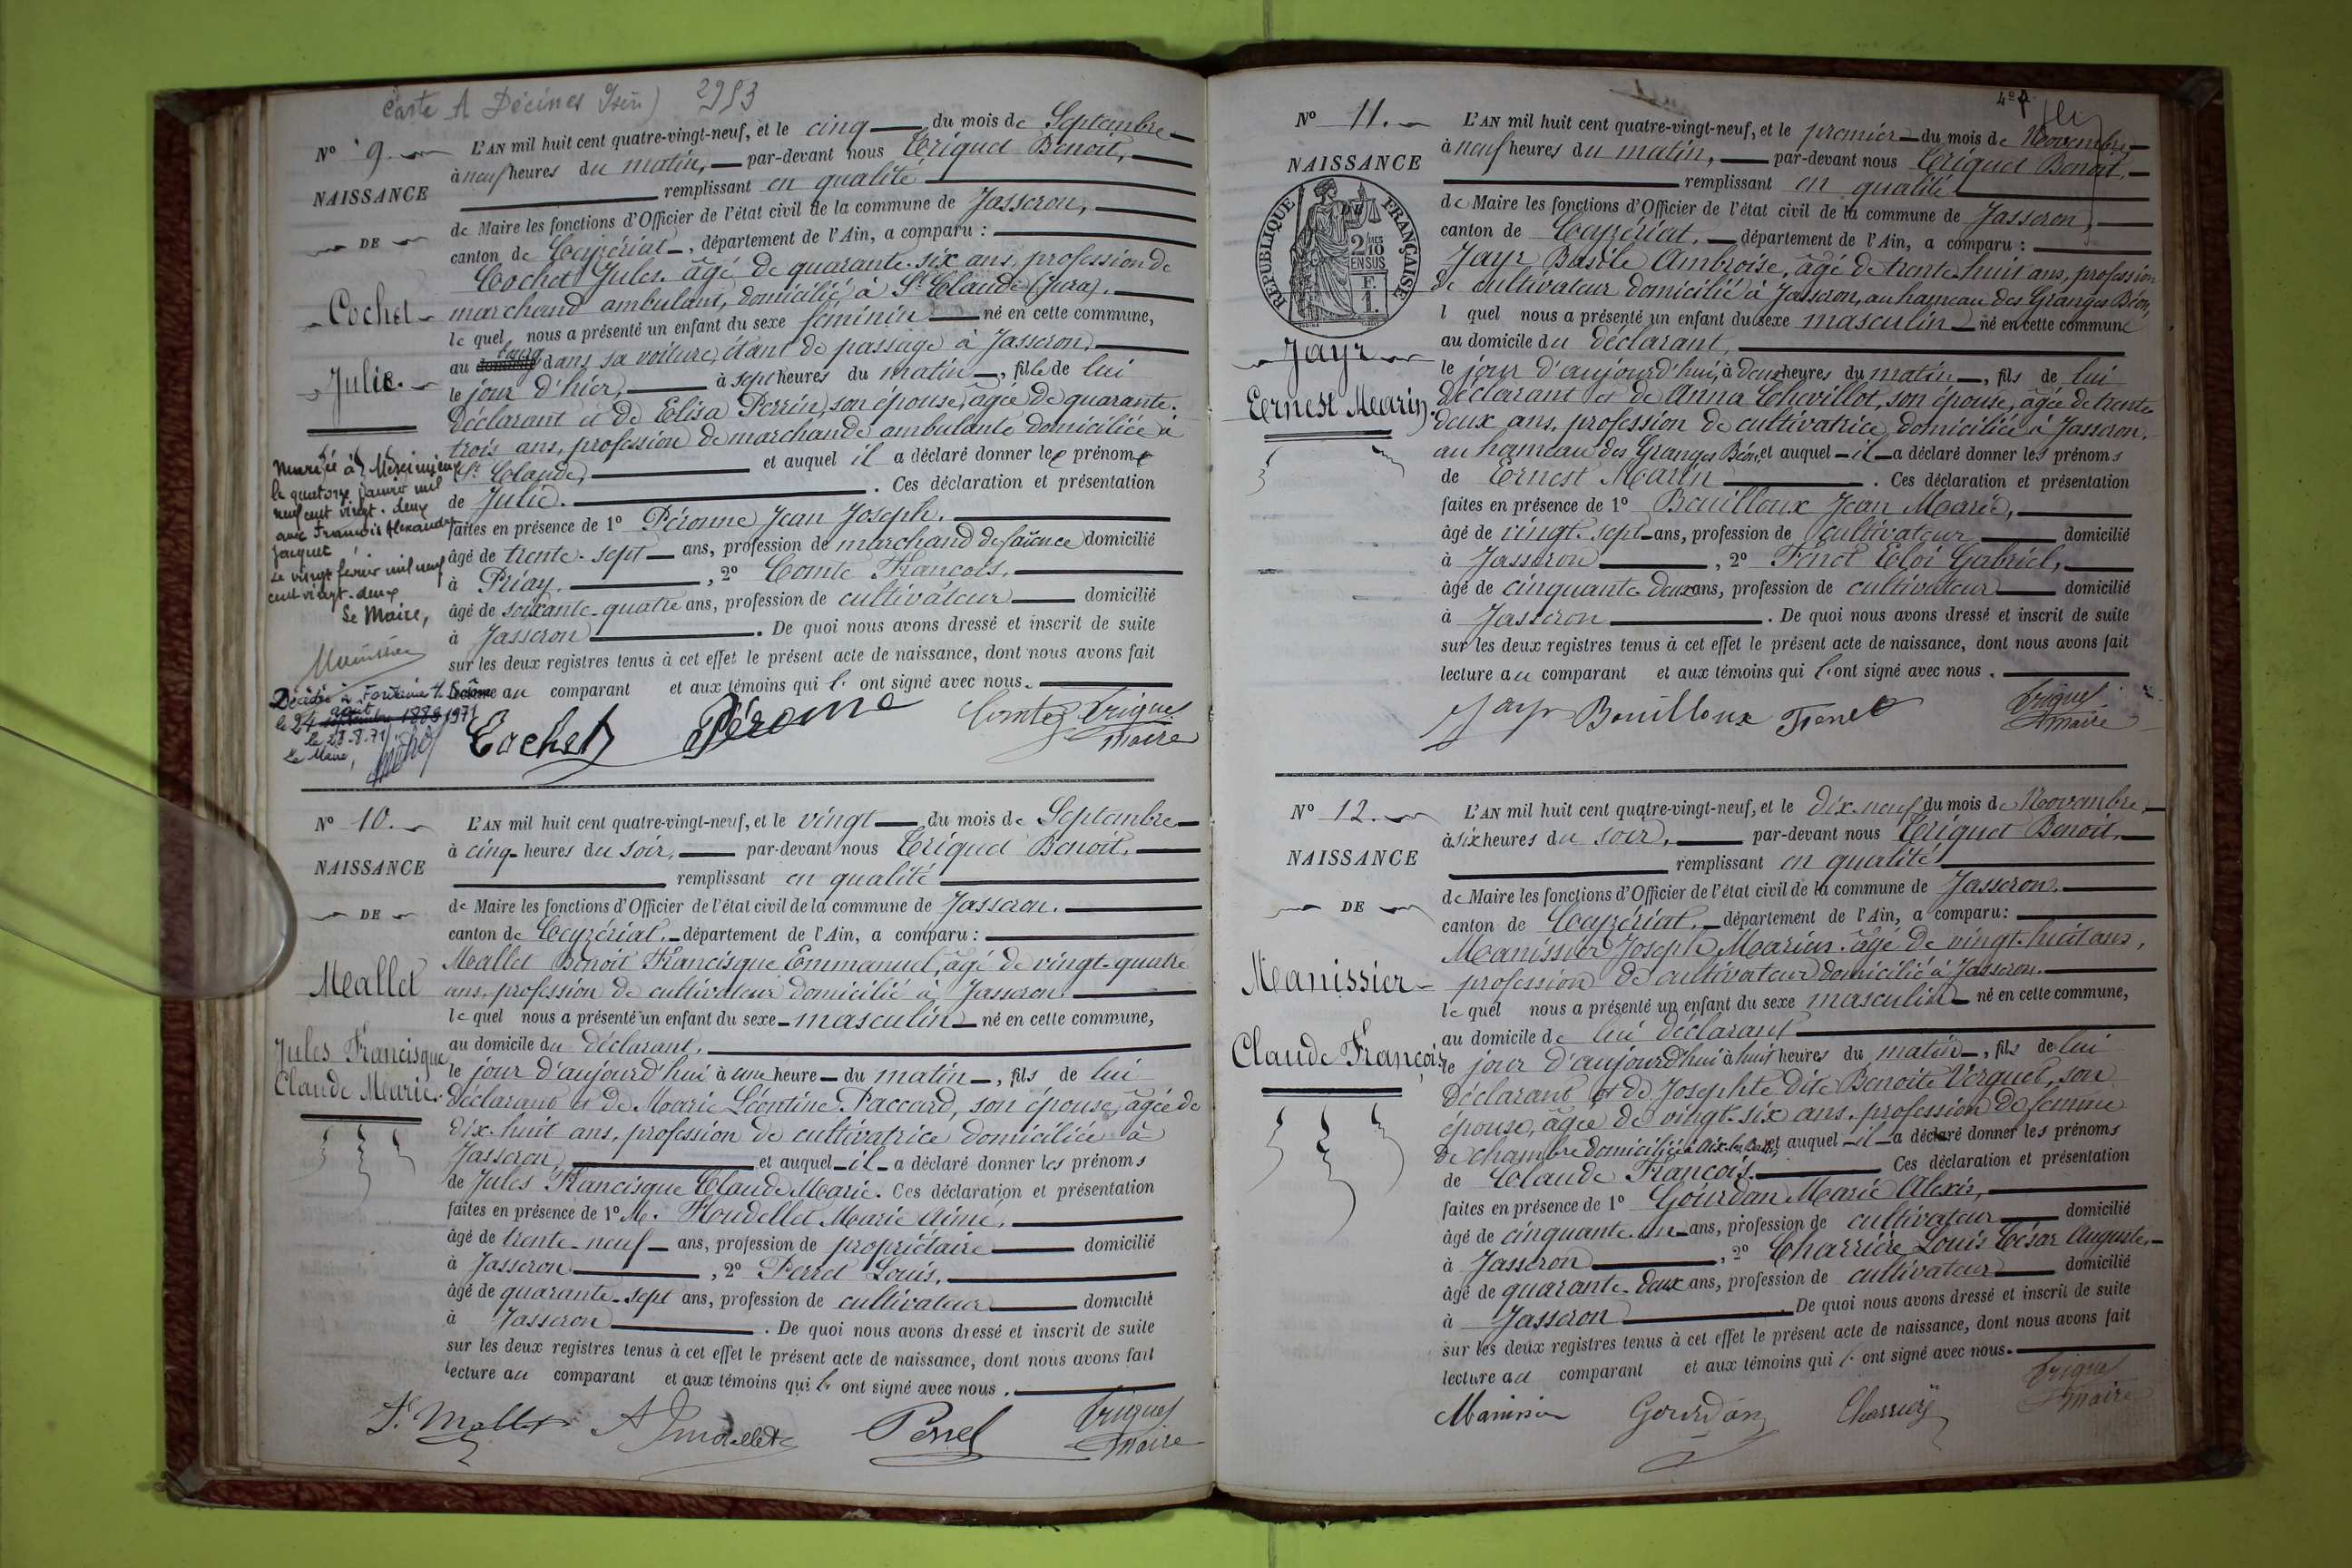 Carte A Décines Isère) 2953
N° 9.
NAISSANCE
DE
Cochet
Julie.
L'AN mil huit cent quatre-vingt-neuf, et le cinq du mois de Septembre
à neuf heures du matin, par-devant nous Triquet Benoit,
remplissant en qualité
de Maire les fonctions d'Officier de l'état civil de la commune de Jasseron,
canton de Ceyzériat, département de l'Ain, a comparu :
Cochet Jules âgé de quarante-six ans, profession de
marchand ambulant, domicilié à St Claude (Jura).
le quel nous a présenté un enfant du sexe féminin né en cette commune,
au bourg dans sa voiture, étant de passage à Jasseron,
le jour d'hier, à sept heures du matin, fille de lui
déclarant et de Elisa Perrin, son épouse, âgée de quarante-
trois ans, profession de marchande ambulante domiciliée à
St Claude, et auquel il a déclaré donner le prénom
de Julie. Ces déclaration et présentation
faites en présence de 1° Péronne Jean Joseph,
âgé de trente-sept ans, profession de marchand de faïence domicilié
à Priay, 2° Comte François,
âgé de soixante-quatre ans, profession de cultivateur domicilié
à Jasseron. De quoi nous avons dressé et inscrit de suite
sur les deux registres tenus à cet effet le présent acte de naissance, dont nous avons fait
lecture au comparant et aux témoins qui l'ont signé avec nous.
Cochet Péronne Comte Triquet
maire
Mariée à Meximieux
le quatorze janvier mil
neuf cent vingt-deux
avec François Alexandre
Jacquet
Le vingt février mil neuf
cent vingt-deux
Le Maire,
Décédée à Fontaine
le 24 août 1971
le 28.8.71
Le Maire,
N° 10.
NAISSANCE
DE
Mallet
Jules Francisque
Claude Marie.
L'AN mil huit cent quatre-vingt-neuf, et le vingt du mois de Septembre
à cinq heures du soir, par-devant nous Triquet Benoit,
remplissant en qualité
de Maire les fonctions d'Officier de l'état civil de la commune de Jasseron.
canton de Ceyzériat, département de l'Ain, a comparu :
Mallet Benoit Francisque Emmanuel, âgé de vingt-quatre
ans, profession de cultivateur domicilié à Jasseron.
le quel nous a présenté un enfant du sexe masculin né en cette commune,
au domicile du déclarant,
le jour d'aujourd'hui à une heure du matin, fils de lui
déclarant et de Marie Léontine Paccard, son épouse, âgée de
dix-huit ans, profession de cultivatrice domiciliée à
Jasseron, et auquel il a déclaré donner les prénoms
de Jules Francisque Claude Marie. Ces déclaration et présentation
faites en présence de 1° M. Houdellet Marie Aimé,
âgé de trente-neuf ans, profession de propriétaire domicilié
à Jasseron, 2° Perret Louis,
âgé de quarante-sept ans, profession de cultivateur domicilié
à Jasseron. De quoi nous avons dressé et inscrit de suite
sur les deux registres tenus à cet effet le présent acte de naissance, dont nous avons fait
lecture au comparant et aux témoins qui l'ont signé avec nous.
F. Mallet Perret Triquet
maire
N° 11.
NAISSANCE
RÉPUBLIQUE FRANÇAISE
Jayr
Ernest Marin.
L'AN mil huit cent quatre-vingt-neuf, et le premier du mois de Novembre
à neuf heures du matin, par-devant nous Triquet Benoit,
remplissant en qualité
de Maire les fonctions d'Officier de l'état civil de la commune de Jasseron,
canton de Ceyzériat, département de l'Ain, a comparu :
Jayr Basile Ambroise, âgé de trente-huit ans, profession
de cultivateur domicilié à Jasseron, au hameau des Granges Béon,
l quel nous a présenté un enfant du sexe masculin né en cette commune
au domicile du déclarant,
le jour d'aujourd'hui, à deux heures du matin, fils de lui
déclarant et de Anna Chevillot, son épouse, âgée de trente
deux ans, profession de cultivatrice, domiciliée à Jasseron,
au hameau des Granges Béon, et auquel il a déclaré donner les prénoms
de Ernest Marin. Ces déclaration et présentation
faites en présence de 1° Bouilloux Jean Marie,
âgé de vingt-sept ans, profession de cultivateur domicilié
à Jasseron, 2° Fenet Eloi Gabriel,
âgé de cinquante-deux ans, profession de cultivateur domicilié
à Jasseron. De quoi nous avons dressé et inscrit de suite
sur les deux registres tenus à cet effet le présent acte de naissance, dont nous avons fait
lecture au comparant et aux témoins qui l'ont signé avec nous.
Jayr Bouilloux Fenet Triquet
maire
N° 12.
NAISSANCE
DE
Manissier
Claude François
L'AN mil huit cent quatre-vingt-neuf, et le dix-neuf du mois de Novembre
à six heures du soir, par-devant nous Triquet Benoit,
remplissant en qualité
de Maire les fonctions d'Officier de l'état civil de la commune de Jasseron,
canton de Ceyzériat, département de l'Ain, a comparu :
Manissier Joseph Marius âgé de vingt-huit ans,
profession de cultivateur domicilié à Jasseron.
le quel nous a présenté un enfant du sexe masculin né en cette commune,
au domicile de lui déclarant
le jour d'aujourd'hui à huit heures du matin, fils de lui
déclarant et de Josephte dite Benoite Verguet, son
épouse, âgée de vingt-six ans, profession de femme
de chambre domiciliée à Aix-les-Bains, et auquel il a déclaré donner les prénoms
de Claude François. Ces déclaration et présentation
faites en présence de 1° Gourdan Marie Alexis,
âgé de cinquante-un ans, profession de cultivateur domicilié
à Jasseron, 2° Charrière Louis César Auguste,
âgé de quarante-deux ans, profession de cultivateur domicilié
à Jasseron De quoi nous avons dressé et inscrit de suite
sur les deux registres tenus à cet effet le présent acte de naissance, dont nous avons fait
lecture au comparant et aux témoins qui l'ont signé avec nous.
Manissier Gourdan Charrière Triquet
maire